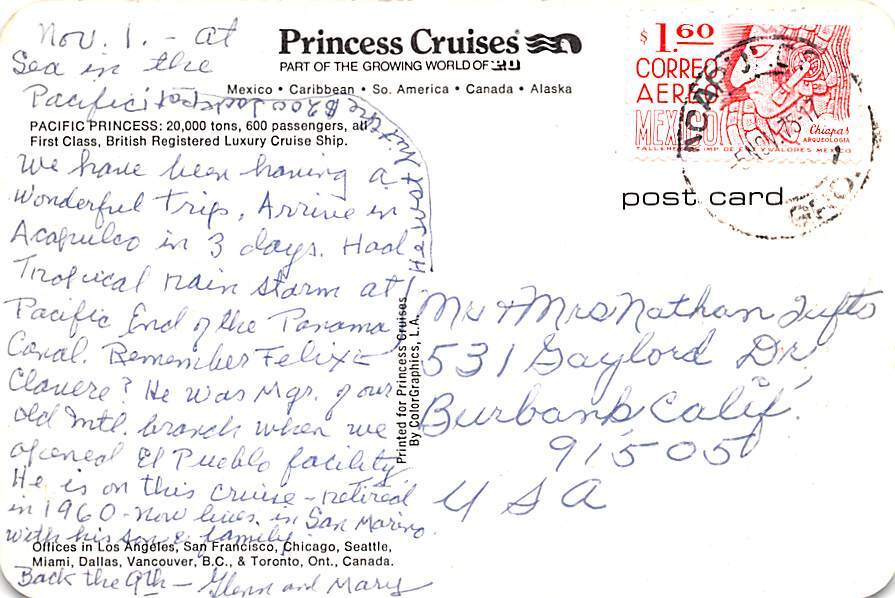 Nov. 1. - at
Sea in the
Pacific
Princess Cruises
PART OF THE GROWING WORLD OF P&O
Mexico • Caribbean • So. America • Canada • Alaska
PACIFIC PRINCESS: 20,000 tons, 600 passengers, all
First Class, British Registered Luxury Cruise Ship.
We have been having a
wonderful trip. Arrive in
Acapulco in 3 days. Had
Tropical rain storm at
Pacific End of the Panama
Canal. Remember Felix
Clavere? He was Mgr. of our
old Mtl. branch when we
opened El Pueblo facility.
He is on this cruise - retired
in 1960 - now lives in San Marino
with his son & family.
Offices in Los Angeles, San Francisco, Chicago, Seattle,
Miami, Dallas, Vancouver, B.C., & Toronto, Ont., Canada.
Back the 9th - Glenn and Mary
He won the $200 Jackpot
Printed for Princess Cruises
By ColorGraphics, L.A.
$1.60
CORREO
AEREO
MEXICO
Chiapas
ARQUEOLOGIA
TALLERES IMP. DE EST. Y VALORES MEXICO
5 NOV. 75-12
GRO.
post card
Mr + Mrs Nathan Tufts
531 Gaylord Dr.
Burbank, Calif.
91505
USA